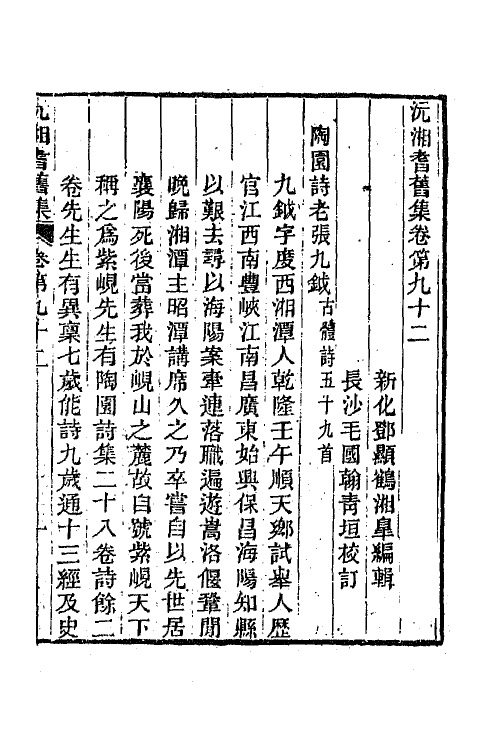 沅湘耆舊集卷第九十二
新化鄧顯鶴湘臯編輯
長沙毛國翰靑垣校訂
陶園詩老張九鉞古體詩五十九首
九鉞字度西湘潭人乾隆壬午順天鄉試舉人歷
官江西南豐峽江南昌廣東始興保昌海陽知縣
以艱去尋以海陽案牽連落職遍遊嵩洛偃鞏閒
晚歸湘潭主昭潭講席久之乃卒嘗自以先世居
襄陽死後當葬我於峴山之麓故自號紫峴天下
稱之爲紫峴先生有陶園詩集二十八卷詩餘二
卷先生生有異稟七歲能詩九歲通十三經及史
沅湘耆舊集 卷第九十二 一